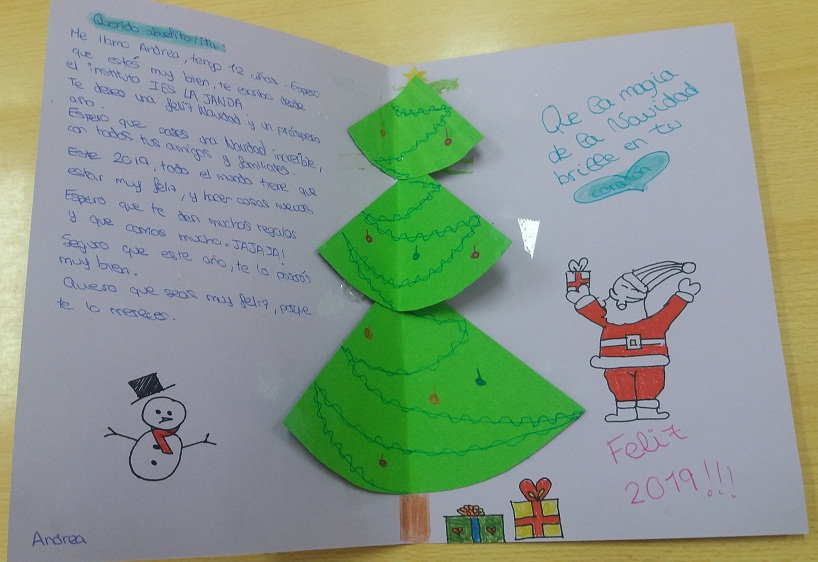 Querido abuelito/ita:
Me llamo Andrea, tengo 12 años. Espero
que estés muy bien, te escribo desde
el instituto IES LA JANDA
Te deseo una feliz Navidad y un próspero
año.
Espero que pases una Navidad increíble,
con todos tus amigos y familiares.
Este 2019, todo el mundo tiene que
estar muy feliz, y hacer cosas nuevas.
Espero que te den muchos regalos
y que comas mucho. JAJAJA!
Seguro que este año, te lo pasas
muy bien.
Quiero que seas muy feliz, porque
te lo mereces.
Andrea
Que la magia
de la Navidad
brille en tu
corazón
Feliz
2019!!!